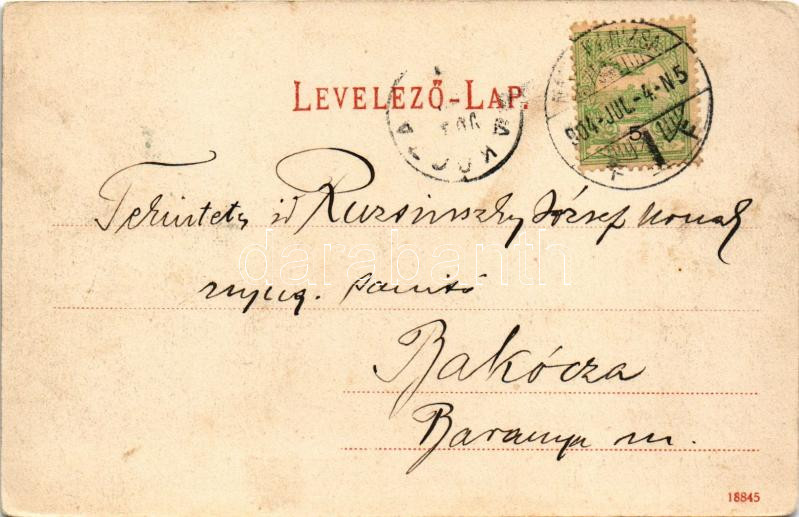 LEVELEZŐ-LAP.
904-JUL-4-N5
5
F
BAKÓCZA
Tekintetes id Ruzsinszky József Urnak
nyug. tanító
Bakócza
Baranya m.
darabanth
18845